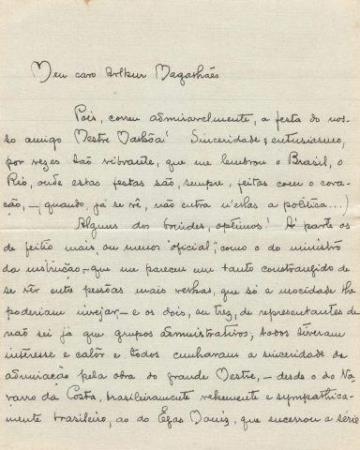 Meu caro Arthur Magalhães
Pois, correu admiravelmente, a festa do nos-
so amigo Mestre Malhôa! Sinceridade, enthusiasmo,
por vezes tão vibrante, que me lembrou o Brasil, o
Rio, onde estas festas são, sempre, feitas com o cora-
ção, —, quando, já se vê, não entra n'ellas a politica...)
Alguns dos brindes, optimos! Á parte os
de feitio mais ou menor "oficial", como o do ministro
da instrução, que me pareceu um tanto constrangido de
se vêr entre pessôas mais velhas, que só a mocidade lha
poderiam invejar — e os dois, ou tres, de representantes de
não sei já que grupos administrativos, todos tiveram
interesse e calôr e todos cunharam a sinceridade da
admiração pela obra do grande Mestre, — desde o do Na-
varro da Costa, brasileiramente vehemente e sympathica-
mente brasileiro, ao do Egas Moniz, que encerrou a série